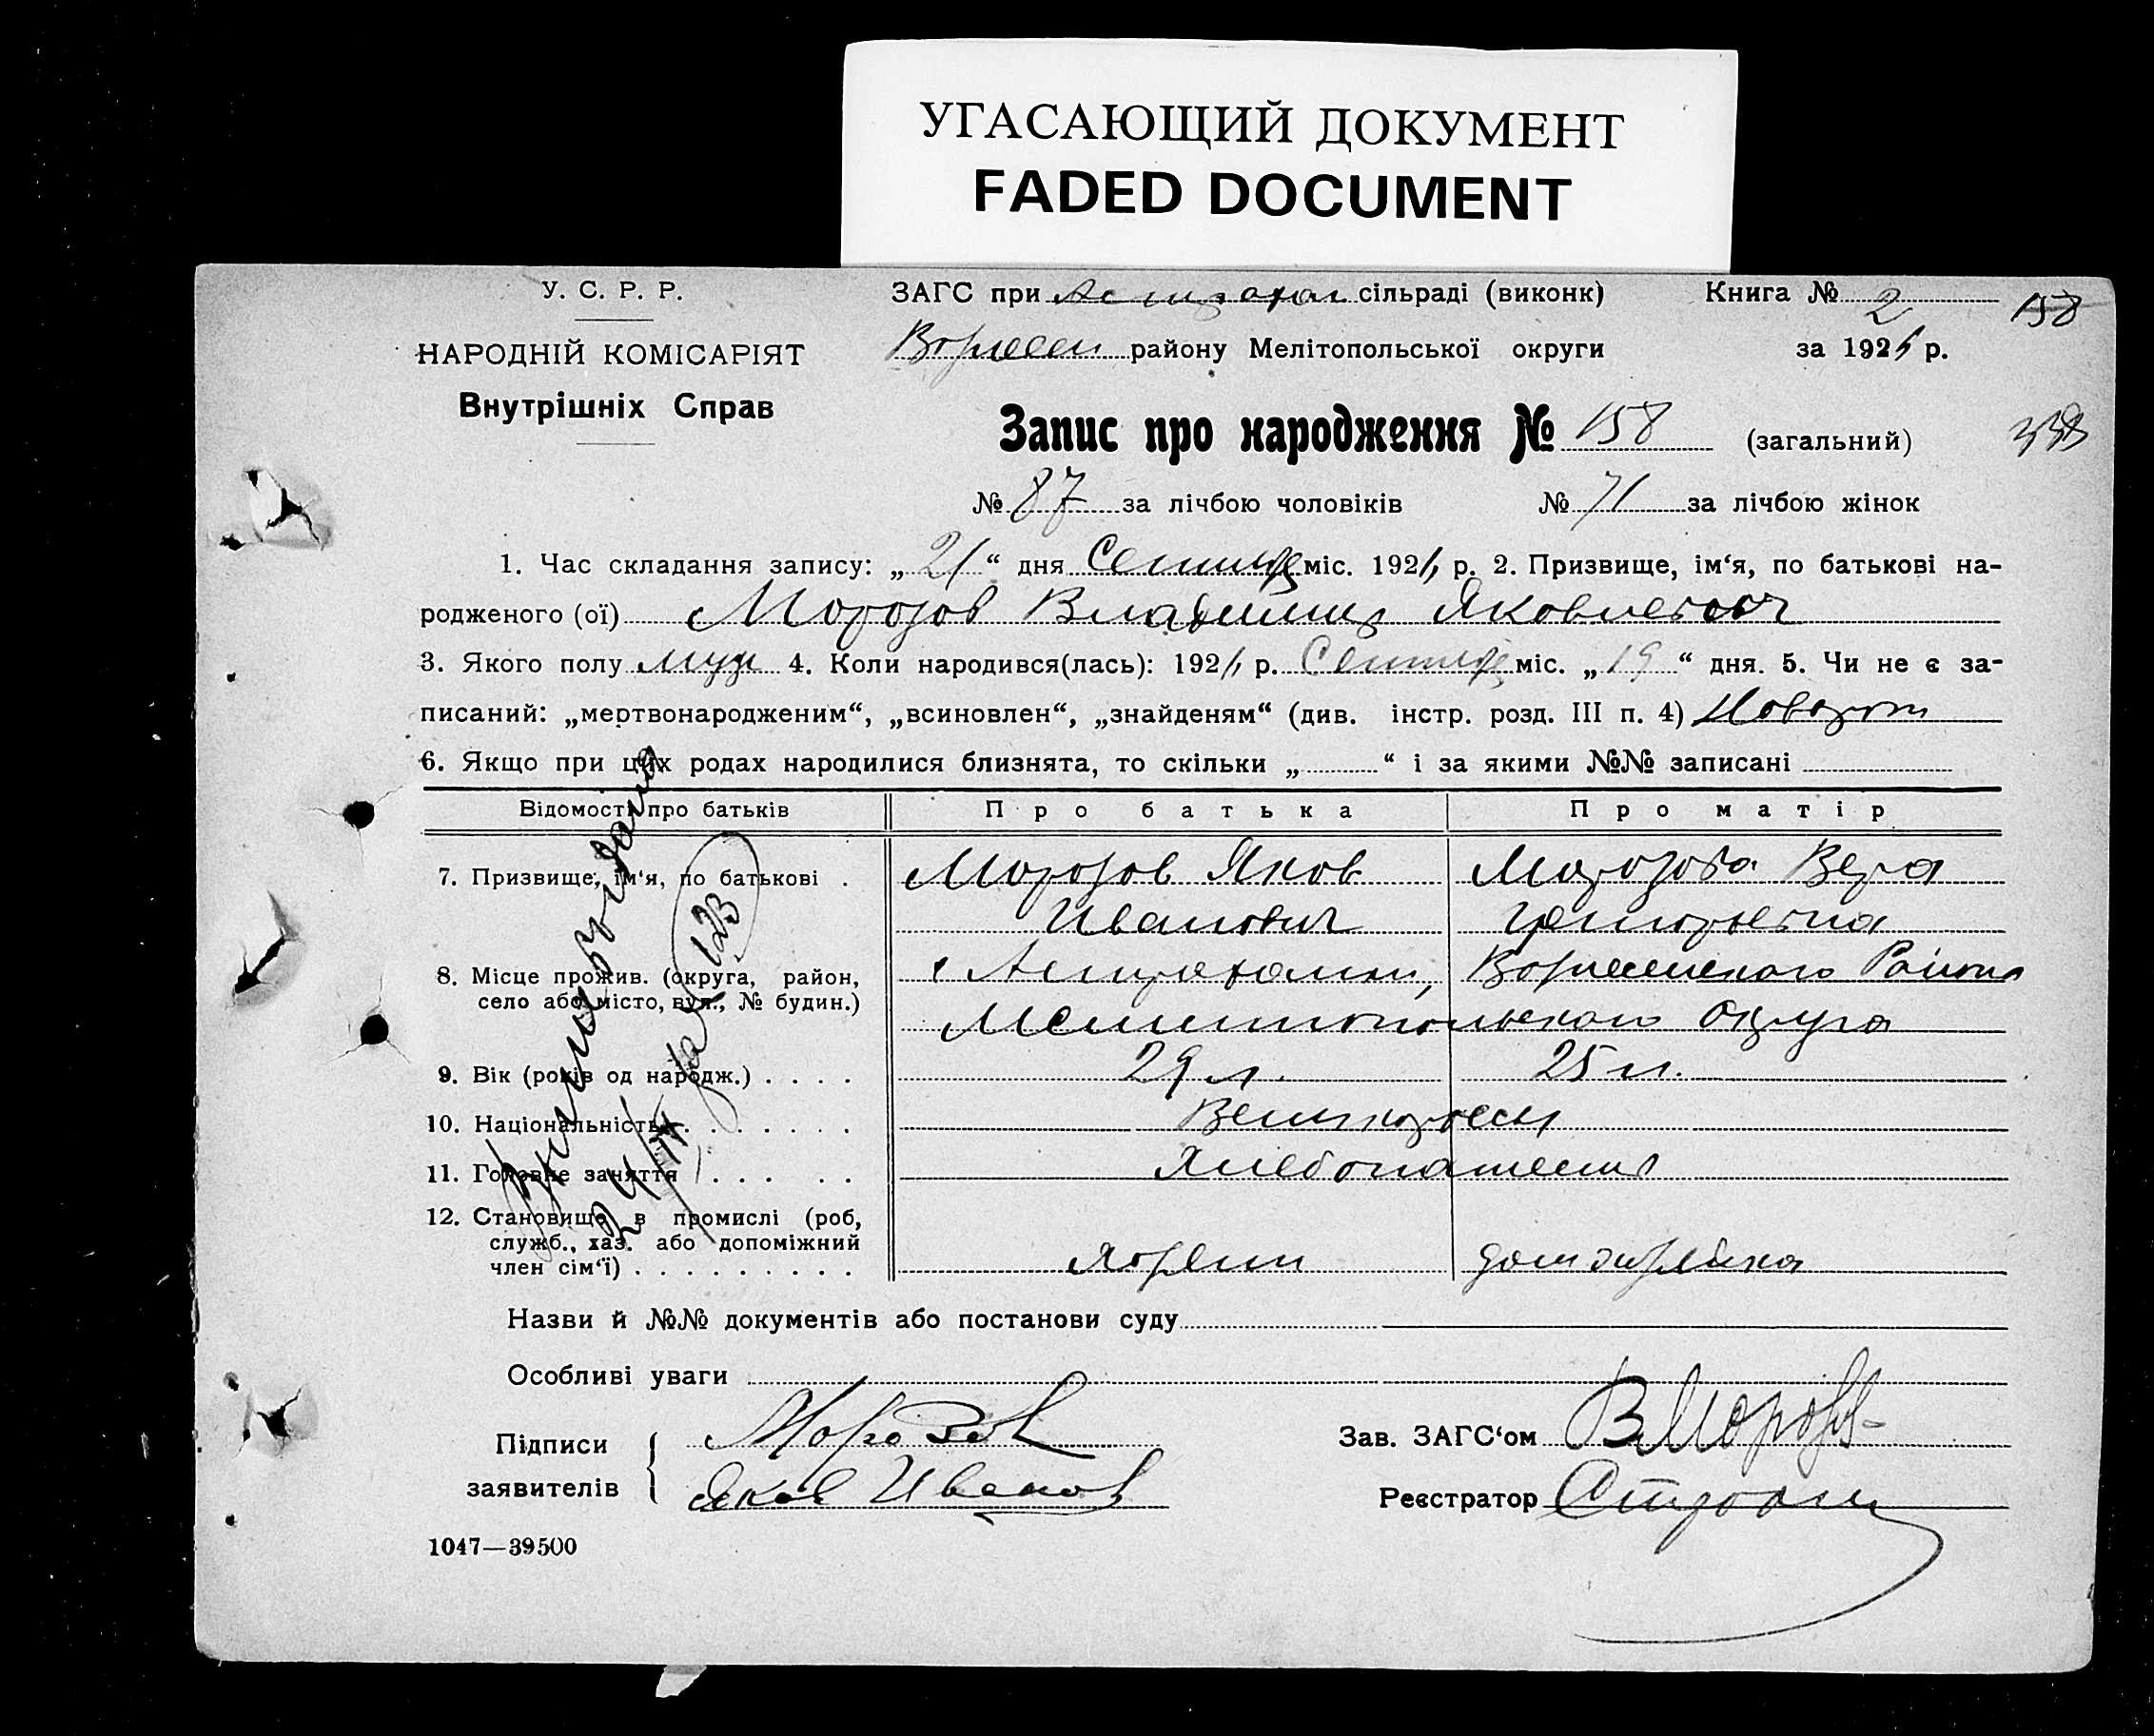 УГАСАЮЩИЙ ДОКУМЕНТ
FADED DOCUMENT
У. С. Р. Р.
НАРОДНІЙ КОМІСАРІЯТ
Внутрішніх Справ
ЗАГС при Астрахан сільраді (виконк)
Книга № 2
158
району Мелітопольської округи
за 192 р.
Запис про народження № 158 (загальний)
№ 87 за лічбою чоловіків № 71 за лічбою жінок
1. Час складання запису: „21“ дня Сентября міс. 192 р. 2. Призвище, ім‘я, по батькові на-
родженого (ої) Морозов Владимир Яковлевич
3. Якого полу муж 4. Коли народився(лась): 192 р. Сентября міс. „19“ дня. 5. Чи не є за-
писаний: „мертвонародженим“, „всиновлен“, „знайденям“ (див. інстр. розд. III п. 4)
6. Якщо при цих родах народилися близнята, то скільки „ “ і за якими №№ записані
Відомості про батьків Про батька Про матір
7. Призвище, ім‘я, по батькові . Морозов Яков Морозова Вера
Иванович Григорьевна
8. Місце прожив. (округа, район,
село або місто, вул., № будин.)
Района
Мелитопольского Округа
9. Вік (років од народж.) . . . . 29 л. 25 л.
10. Національність . . . . . . . Великороссы
11. Головне заняття . . . . . Хлебопашение
12. Становище в промислі (роб,
служб., хаз. або допоміжний
член сім‘ї) . . . . . . . . . хозяин домохозяйка
Назви й №№ документів або постанови суду
Особливі уваги
Підписи
заявителів
Морозов
Яков Иванов
Зав. ЗАГС‘ом ВМорозов
Реєстратор
1047—39500